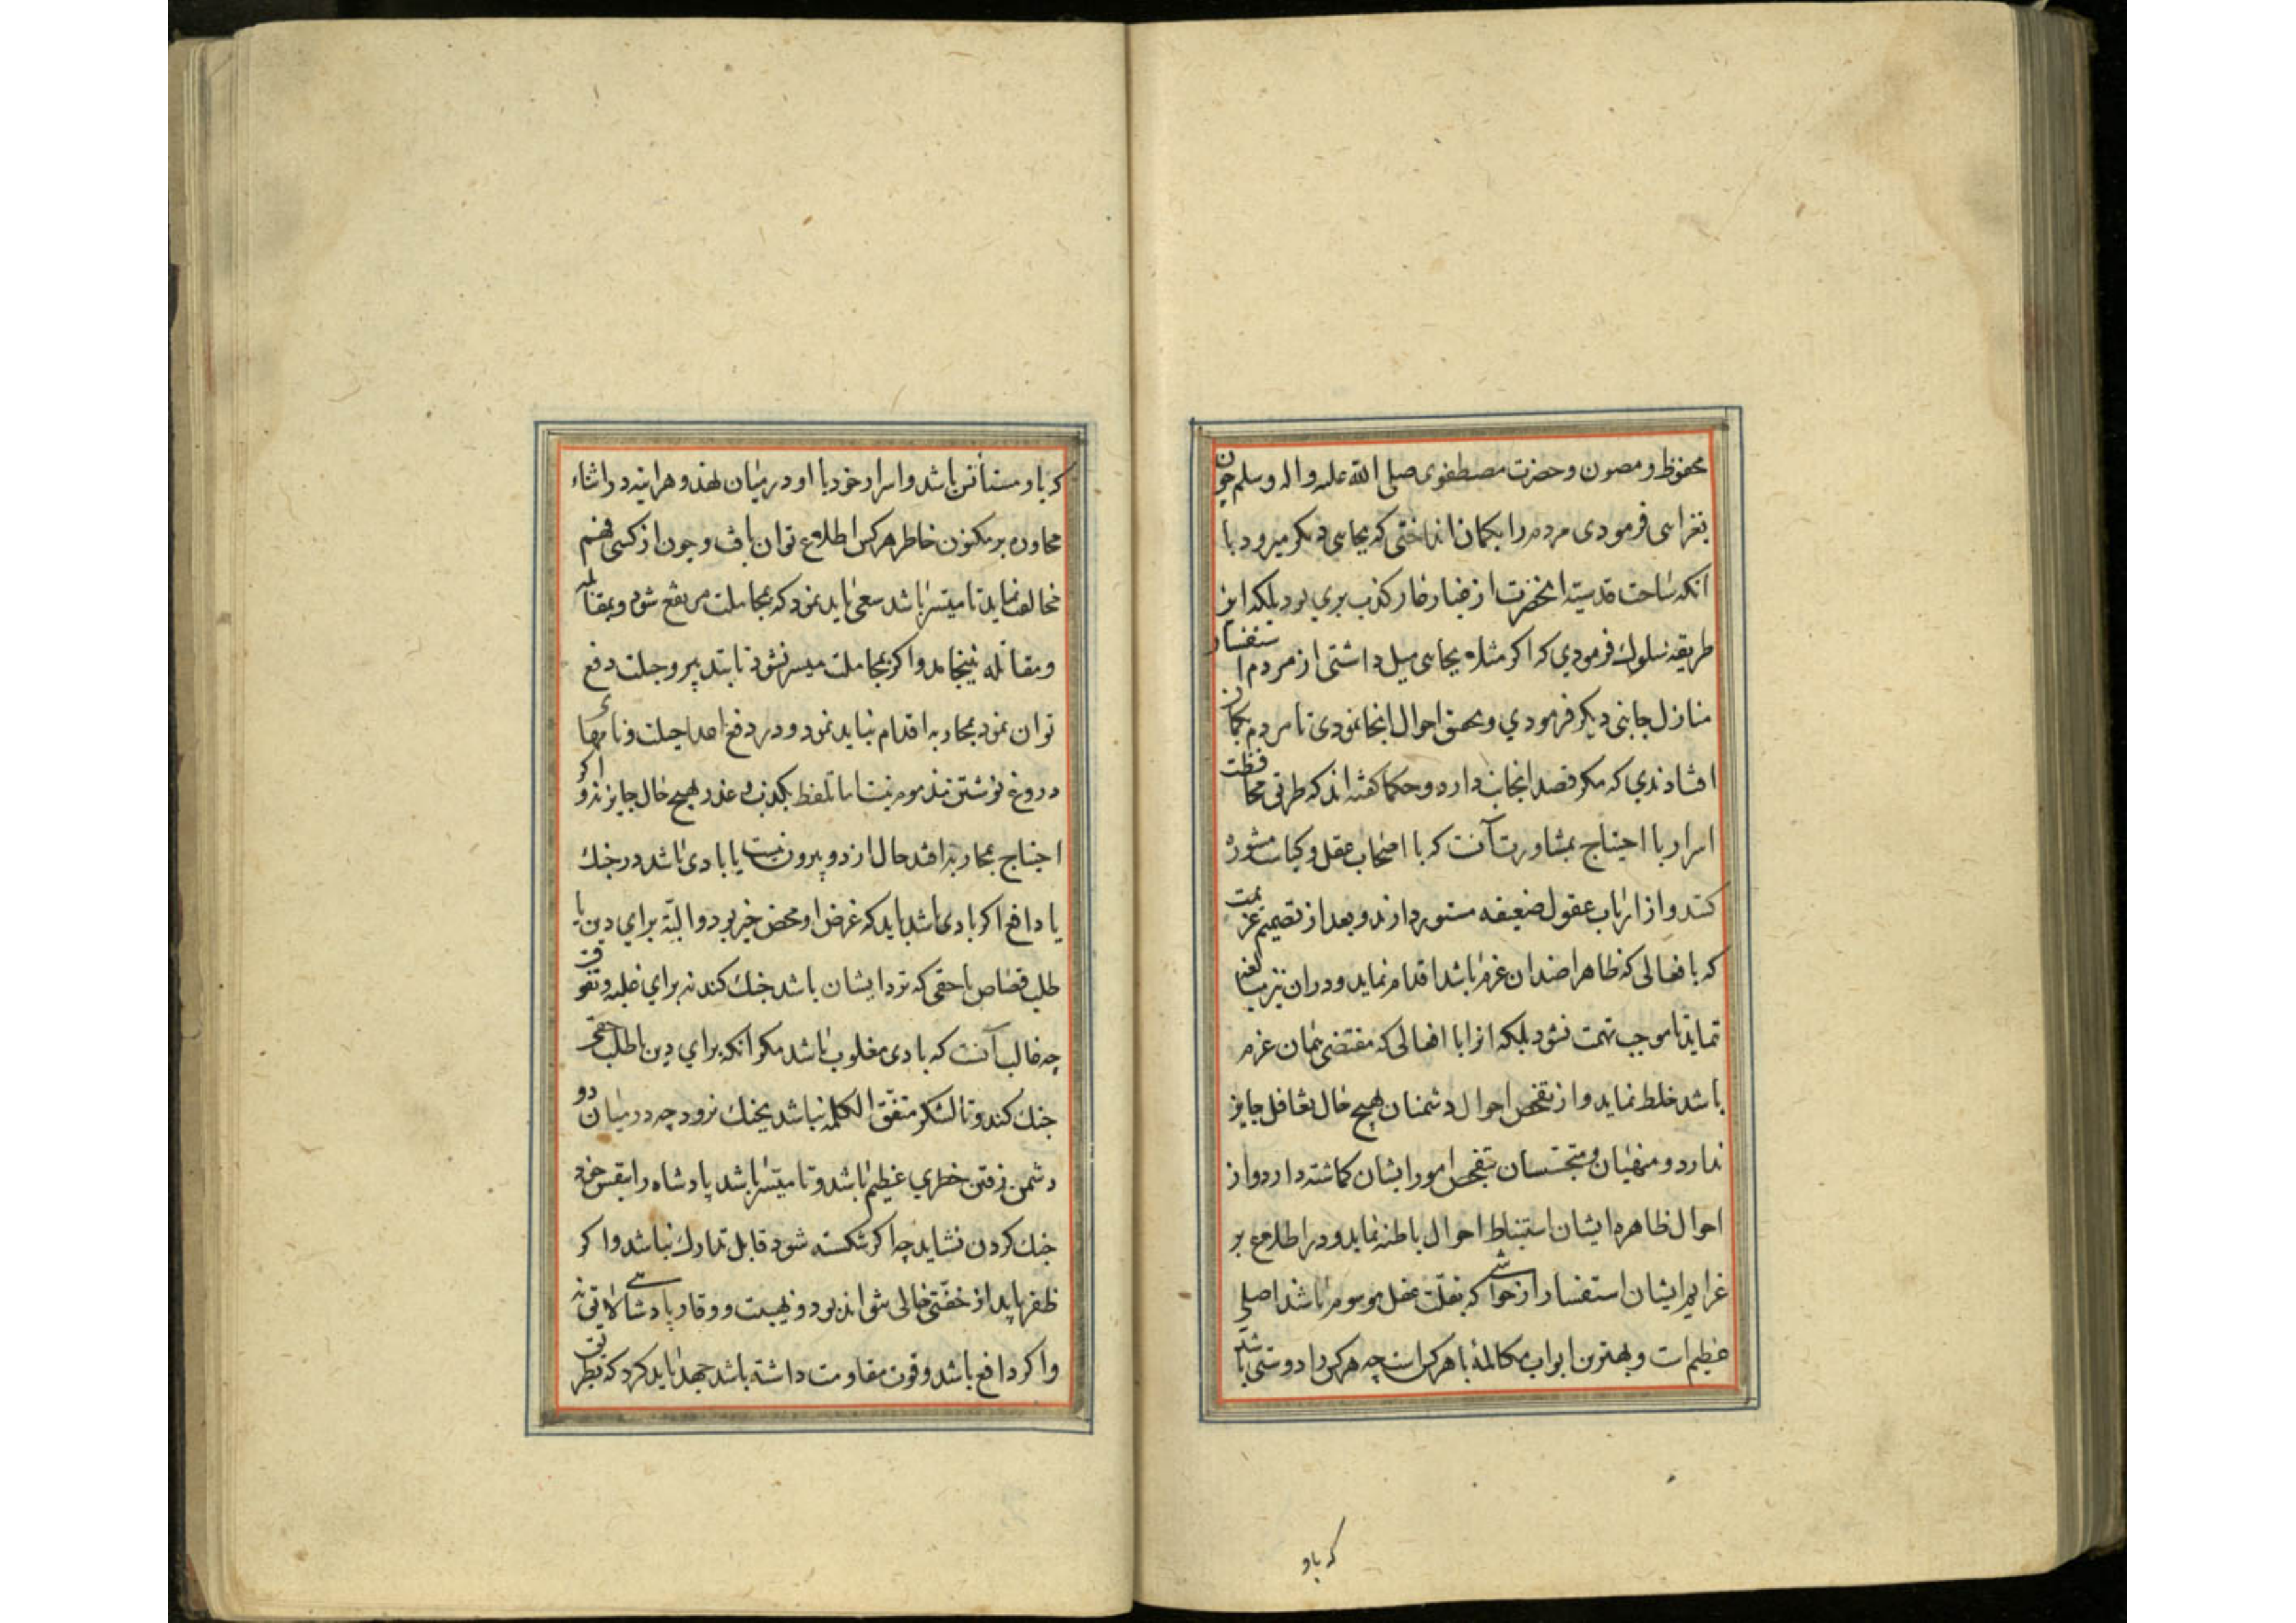 محفوظ و مصون و حضرت مصطفوی صلی الله علیه و اله و سلم چون
بغزاسی فرمودی مردم را بکمان انداختی که بجاسی دیکر میرود با
انکه ساحت قدسیته انحضرت از غبار کذب بری بود بلکه این
طریقه سلوك فرمودي که اکر مثلا بجاسی میل داشتی از مردم استفسار
منازل جانبی دیکر فرمودي و تحقیق احوال انجا نمودی تا مردم بکمان
افتادندي که مکر قصد انجانب دارد و حکما کفته اند که طریق محافظت
اسرار با احتیاج بمشاورت آنست که با اصحاب عقل و کیاست مشورة
کنند و از ارباب عقول ضعیفه مستور دارند و بعد از تصمیم عزیمت
که با فعالی که ظاهرا ضد ان عزم باشد اقدام نماید و در ان نیز مبالغه
نماید تا موجب تهمت نشود بلکه انرا با افعالی که مقتضی همان عزم
باشد خلط نماید و از تفحص احوال دشمنان هیچ حال تغافل جایز
ندارد و منهیان و متجسسان بتفحص امور ایشان کماشته دارد و از
احوال ظاهره ایشان استنباط احوال باطنه نماید و در اطلاع بر
عزایم ایشان استفسار از حواشی که بقلت عقل موسوم باشد اصلی
عظیم است و بهترین ابواب مکالمه با هرکس است چه هرکس را دوستی باشد
که باو
که باو مستأنس باشد و اسرار خود با او در میان نهد و هراینه در اثناء
محاوره بر مکنون خاطر هرکس اطلاع توان یافت و چون از کسی فهم
مخالفت نماید تا میسر باشد سعی باید نمود که بمجاملت مرتفع شود و بمقابله
و مقاتله نینجامد و اکر بمجاملت میسر نشود تا بتدبیر و حیلت دفع
توان نمود بمحاربه اقدام نباید نمود و در دفع اعدا حیلت و نامهاء
دروغ نوشتن مذموم نیست اما تلفظ بکذب و غدر بهیچ حال جایز نه و اکر
احتیاج بمحاربه افتد حال از دو بیرون نیست یا بادی باشد در جنك
یا دافع اکر بادی باشد باید که غرض او محض خیر بود و البته برای دین یا
طلب قصاص یا حقی که نزد ایشان باشد جنك کند نه برای غلبه و تفوق
چه غالب آنست که بادی مغلوب باشد مکر انکه برای دین یا طلب حق
جنك کند و تا لشکر متفق الکلمه نباشد بجنك نرود چه در میان دو
دشمن رفتن خطری عظیم باشد و تا میسر باشد پادشاه را بنفس خود
جنك کردن نشاید چه اکر شکسته شود قابل تدارك نباشد و اکر
ظفر یابد از خفتی خالی نتواند بود و بهیبت و وقار پادشاهی لایق نه
و اکر دافع باشد و قوت مقاومت داشته باشد جهد باید کرد که بطریق